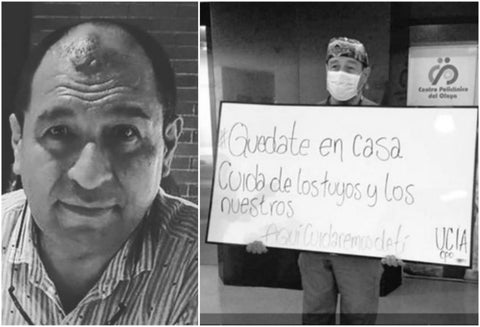 Centro Policlinico
del Olaya
#Quedate en casa
Cuida de los tuyos y los
nuestros
Aquí Cuidaremos de ti
UCIA
CPO